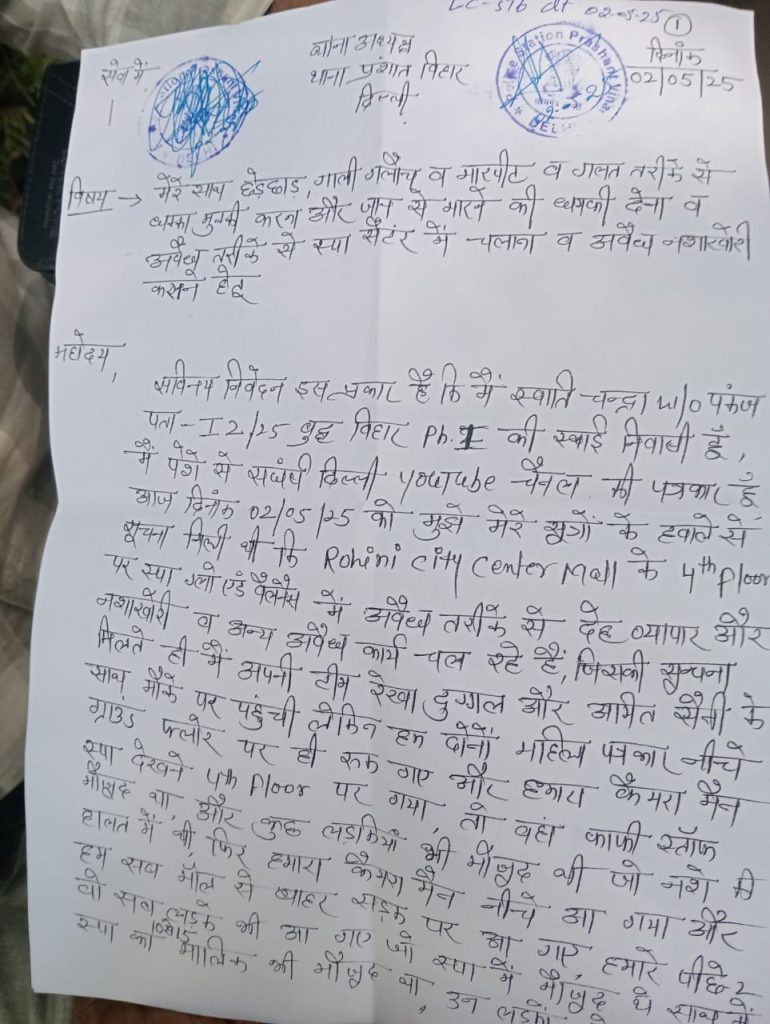 LC-576 dt 02-05-25 ①
सेवा में,
थाना अध्यक्ष
थाना प्रशांत विहार
दिल्ली
Police Station Prashant Vihar
दिनांक
02/05/25
विषय → मेरे साथ छेड़छाड़, गाली गलौच व मारपीट व गलत तरीके से
धक्का मुक्की करना और जान से मारने की धमकी देना व
अवैध तरीके से स्पा सैटंर में चलाना व अवैध नशाखोरी
करान हेतु
महोदय,
सविनय निवेदन इस प्रकार है कि मैं स्वाति चन्द्रा w/o पंकज
पता - I 2/25 बुद्ध विहार Ph. I की स्थाई निवासी हूँ,
मैं पेशे से सधंषी दिल्ली YouTube चैनल की पत्रकार हूँ
आज दिनांक 02/05/25 को मुझे मेरे सूत्रों के हवाले से
सूचना मिली थी कि Rohini City Center Mall के 4th Floor
पर स्पा ग्लो एंड वैलनैस में अवैध तरीके से देह व्यापार और
नशाखोरी व अन्य अवैध कार्य चल रहे हैं, जिसकी सूचना
मिलते ही मैं अपनी टीम रेखा दुग्गल और अमित सैनी के
साथ मौके पर पहुंची लेकिन हम दोनों महिला पत्रकार नीचे
ग्राउंड फ्लोर पर ही रुक गए और हमारा कैमरा मैन
स्पा देखने 4th Floor पर गया, तो वहां काफी स्टॉफ
मौजूद था, और कुछ लड़कियां भी मौजूद थी जो नशे की
हालत में थी, फिर हमारा कैमरा मैन नीचे आ गया और
हम सब मॉल से बाहर सड़क पर आ गए, हमारे पीछे 2
वो सब लड़के भी आ गए जो स्पा में मौजूद थे साथ में
स्पा का मालिक भी मौजूद था, उन लड़कों